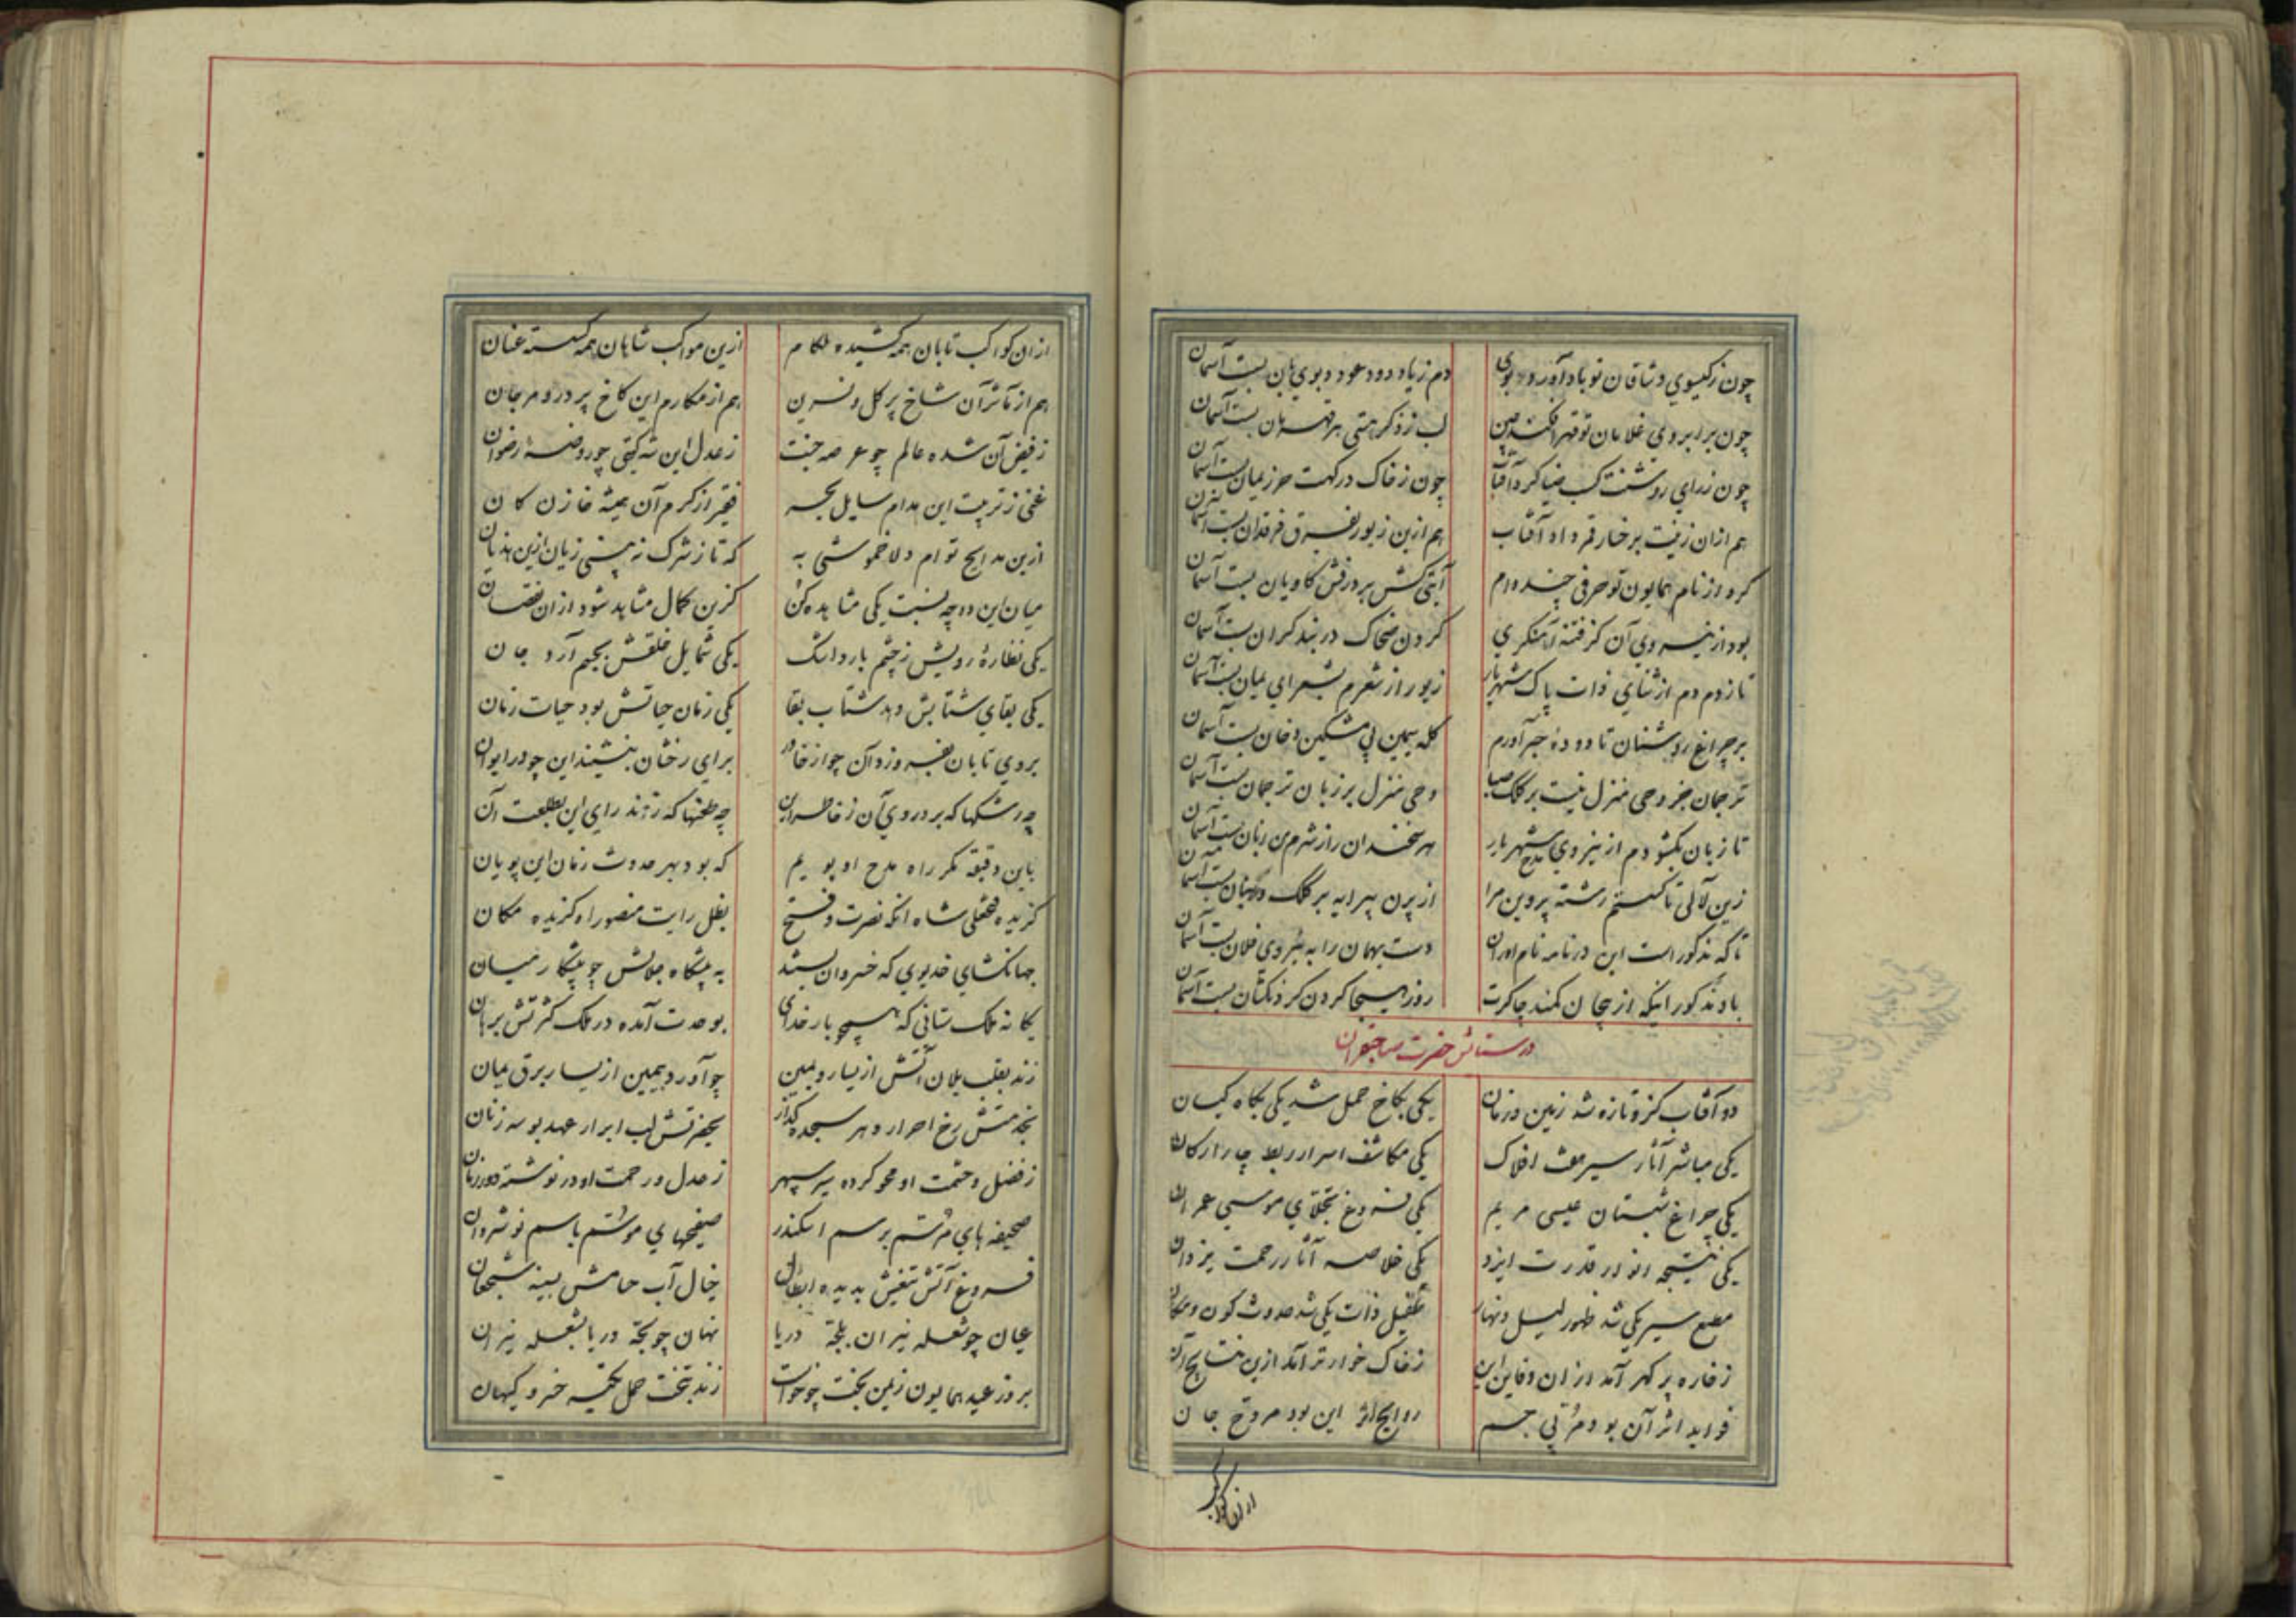 چون ز گیسوی وشاقان تو باد آورد بوی دم ز یاد دود عود و بوی بان بست آسمان
چون بر ابروی غلامان تو قهر افکند چین لب ز ذکر هستی هر قهرمان بست آسمان
چون ز رای روشنت کسب ضیا کرد آفتاب چون ز خاک درگهت حرز یمان بست آسمان
هم ازان زینت برخسار قمر داد آفتاب هم ازین زیور بفرق فرقدان بست آسمان
کرد از نام همایون تو حرفی چند وام آیتی کش بر درفش کاویان بست آسمان
بود از نیروی آن کز فتنه آهنگری گردن ضحاک در بند گران بست آسمان
تا زدم دم از ثنای ذات پاک شهریار زیور از شعرم بشعرای یمان بست آسمان
بر چراغ روشنان تا دوده حبر آورم کله سیمین پی مشکین دخان بست آسمان
ترجمان جز وحی منزل نیست بر کلک صبا وحی منزل بر زبان ترجمان بست آسمان
تا زبان بگشودم از نیروی مدح شهریار هر سخندان را ز شرم من زبان بست آسمان
زین لآلی تا گسستم رشته پروین مرا از پرن پیرایه بر کلک و بنان بست آسمان
تا که مذکور است این در نامه نام‌آوران دست بهمان را به نیروی فلان بست آسمان
باد مذکور اینکه از خم کمند چاکرت روز هیجا گردن گردنکشان بست آسمان
در ستایش حضرت صاحبقران
دو آفتاب کزو تازه شد زمین و زمان یکی بکاخ حمل شد یکی بگاه کیان
یکی مباشر آثار سیر هفت افلاک یکی مکاشف اسرار ربط چار ارکان
یکی چراغ شبستان عیسی مریم یکی فروغ تجلای موسی عمران
یکی نتیجه انوار قدرت ایزد یکی خلاصه آثار رحمت یزدان
مطیع سیر یکی شد ظهور لیل و نهار طفیل ذات یکی شد حدوث کون و مکان
ز خاره پر گهر آمد ازان دفاین این ز خاک خوارتر آمد ازین نتایج آن
فواید اثر آن بود مربی جسم روایح اثر این بود مروح جان
ازان کواکب
ازان کواکب تابان همه کشیده لگام ازین مواکب شاهان همه گسسته عنان
هم از مآثر آن شاخ پر گل و نسرین هم از مکارم این کاخ پر در و مرجان
ز فیض آن شده عالم چو عرصه جنت ز عدل این شه گیتی چو روضه رضوان
غنی ز تربیت این مدام سایل بحر فقیر از کرم آن همیشه خازن کان
ازین مدایح توام دلا خموشی به که تا ز شرک نه بینی زیان ازین هذیان
میان این دو چه نسبت یکی مشاهده کن کزین کمال مشاهد شود ازان نقصان
یکی نظاره رویش ز چشم بارد اشک یکی شمایل خلقش بجسم آرد جان
یکی بقای شتابش دهد شتاب بقا یکی زمان حیاتش بود حیات زمان
بروی تابان بفروزد آن چو از خاور برای رخشان بنشیند این چو در ایوان
چه رشکها که بر دروی آن ز خاطر این چه طعنها که زند رای این بطلعت آن
باین دقیقه مگر راه مدح او پویم که بود بهر حدوث زمان این پویان
گزیده فتحعلی شاه آنکه نصرت و فتح بظل رایت منصور او گزیده مکان
جهانگشای خدیوی که خسروان بستند به پیشگاه جلالش چو پیشکار میان
یگانه ملک ستانی که همچو بار خدای بوحدت آمده در ملک کثرتش برهان
زند بقلب یلان آتش از یسار و یمین چو آورد بیمین از یسار برق یمان
بخدمتش رخ احرار دهر سجده گذار بحضرتش لب ابرار عهد بوسه زنان
ز فضل و حشمت او محو کرده پیر سپهر ز عدل و رحمت او در نوشته دور زمان
صحیفه‌های مرتسم برسم اسکندر صفیحهای موشم باسم نوشروان
فروغ آتش تیغش بدیده ابطال خیال آب حسامش بسینه شجعان
عیان چو شعله نیران بلجه دریا نهان چو لجه دریا بشعله نیران
بروز عید همایون زمین بخت چو خواست زند بتخت حمل تکیه خسرو گیهان